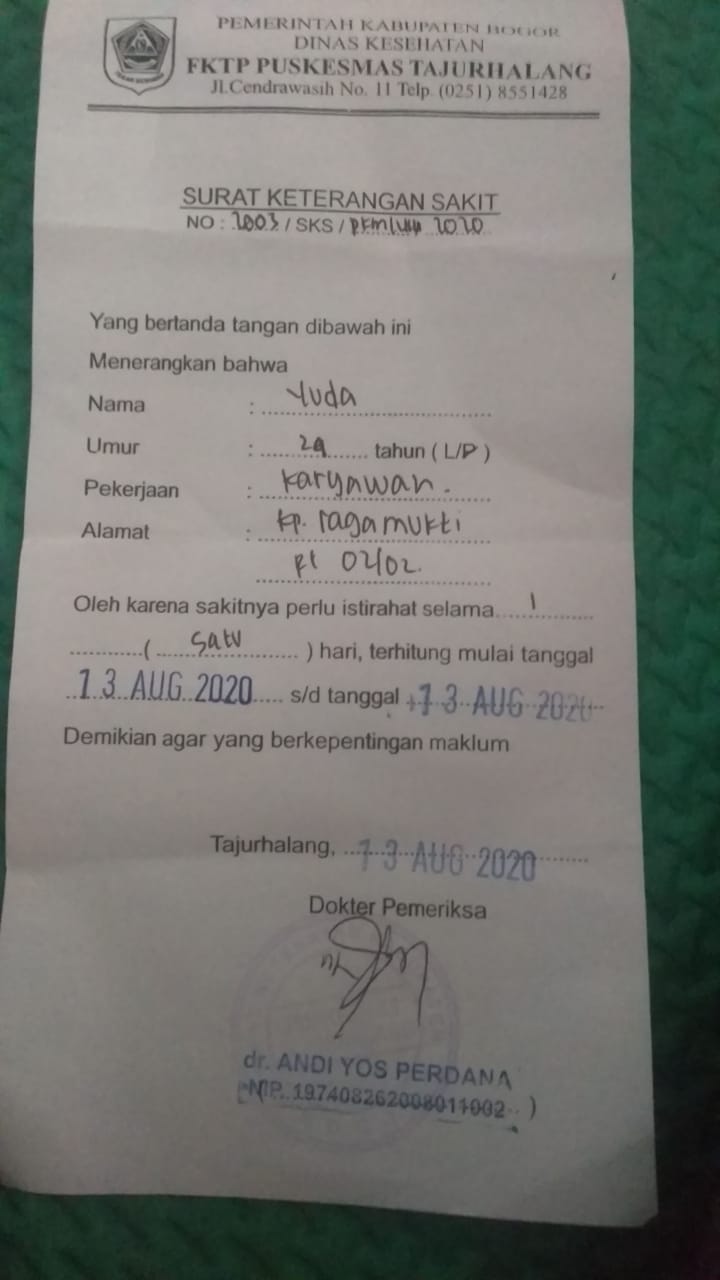 PEMERINTAH KABUPATEN BOGOR
DINAS KESEHATAN
FKTP PUSKESMAS TAJURHALANG
Jl.Cendrawasih No. 11 Telp. (0251) 8551428
SURAT KETERANGAN SAKIT
NO : 2003 / SKS / 2020
Yang bertanda tangan dibawah ini
Menerangkan bahwa
Nama : Yuda
Umur : 29 tahun ( L/P )
Pekerjaan : Karyawan.
Alamat : Kp. ragamukti
Rt 02/02.
Oleh karena sakitnya perlu istirahat selama 1
( satu ) hari, terhitung mulai tanggal
13 AUG 2020 s/d tanggal 13 AUG 2020
Demikian agar yang berkepentingan maklum
Tajurhalang, 13 AUG 2020
Dokter Pemeriksa
dr. ANDI YOS PERDANA
NIP. 197408262008011002 )